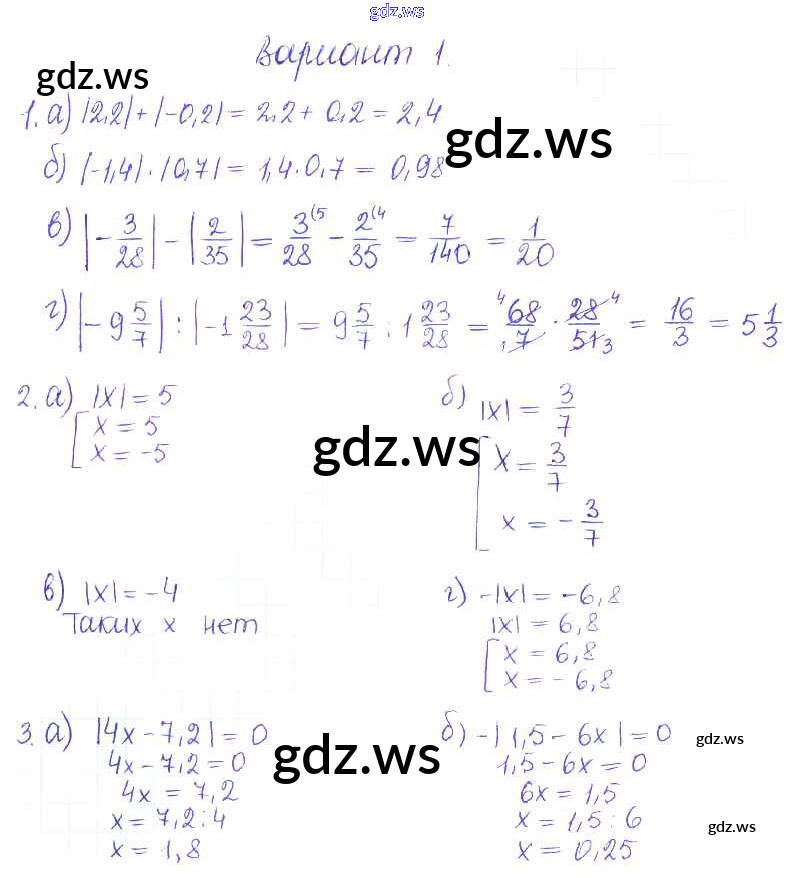 gdz.ws
Вариант 1.
gdz.ws
1. а) |2,2| + |-0,2| = 2,2 + 0,2 = 2,4
gdz.ws
б) |-1,4| · |0,7| = 1,4 · 0,7 = 0,98
в) |-3/28| - |2/35| = 3(5/28 - 2(4/35 = 7/140 = 1/20
г) |-9 5/7| : |-1 23/28| = 9 5/7 : 1 23/28 = 4 68/1 7 · 28 4/51 3 = 16/3 = 5 1/3
2. а) |x| = 5
[ x = 5
x = -5
б) |x| = 3/7
[ x = 3/7
x = -3/7
gdz.ws
в) |x| = -4
Таких x нет
г) -|x| = -6,8
|x| = 6,8
[ x = 6,8
x = -6,8
3. а) |4x - 7,2| = 0
4x - 7,2 = 0
4x = 7,2
x = 7,2 : 4
x = 1,8
gdz.ws
б) -|1,5 - 6x| = 0
1,5 - 6x = 0
6x = 1,5
x = 1,5 : 6
x = 0,25
gdz.ws
gdz.ws